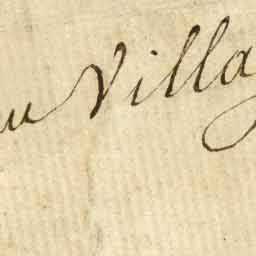 au Villag